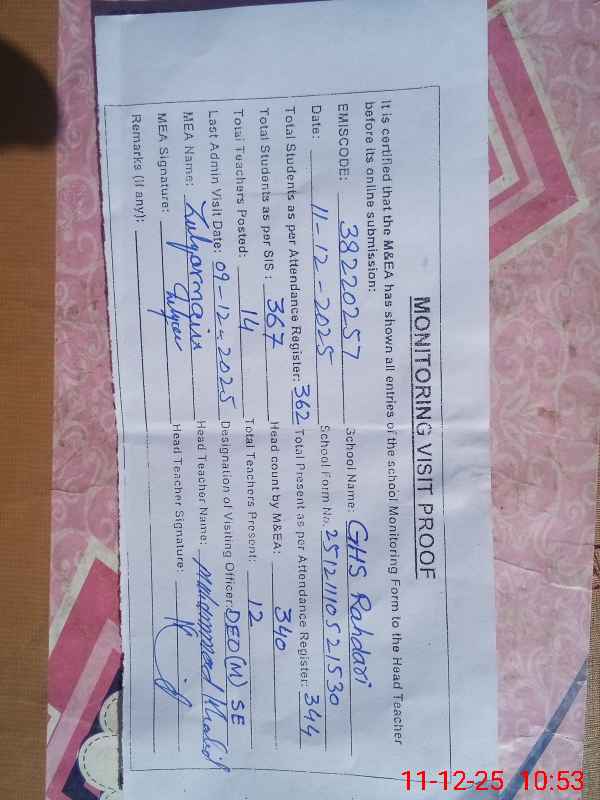 MONITORING VISIT PROOF
It is certified that the M&EA has shown all entries of the school Monitoring Form to the Head Teacher
before its online submission:
EMISCODE: 38220257 School Name: GHS Rahdari
Date: 11-12-2025 School Form No. 25121110521530
Total Students as per Attendance Register: 362 Total Present as per Attendance Register: 344
Total Students as per SIS: 367 Head count by M&EA: 340
Total Teachers Posted: 14 Total Teachers Present: 12
Last Admin Visit Date: 09-12-2025 Designation of Visiting Officer: DEO(M) SE
MEA Name: Zulqarnain Head Teacher Name: Muhammad Khalid
MEA Signature: Head Teacher Signature:
Remarks (if any):
11-12-25 10:53